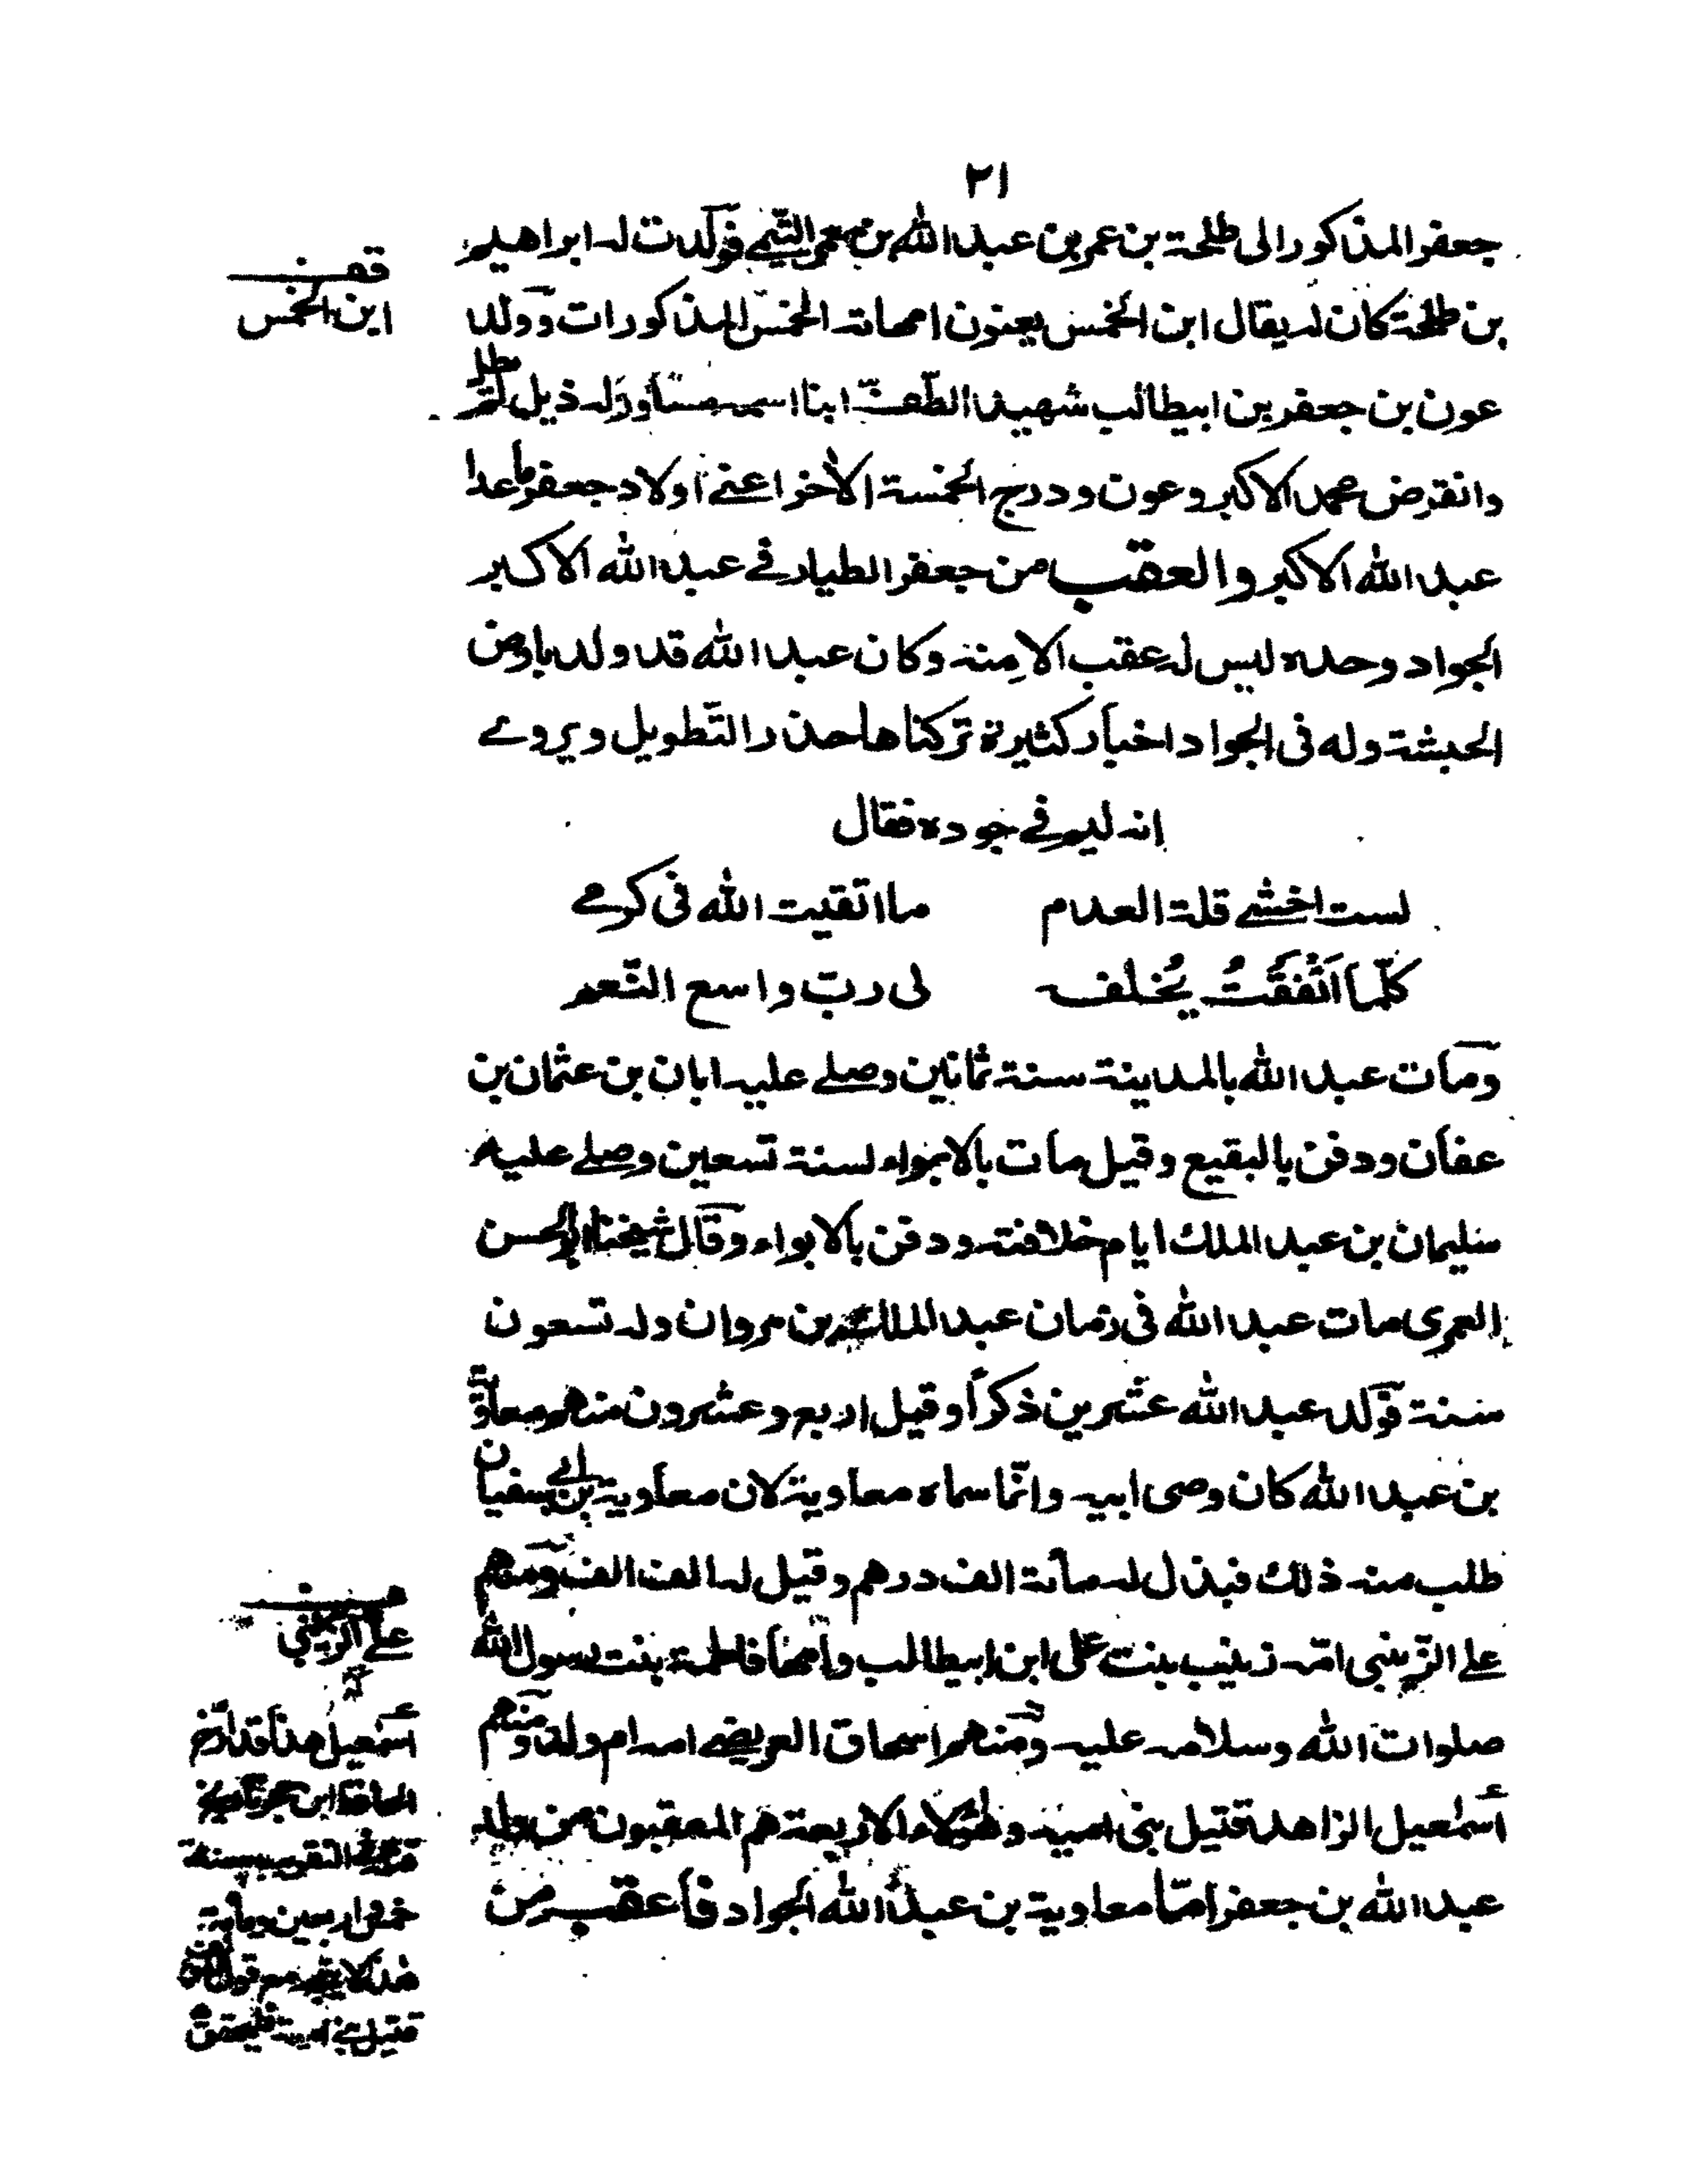 ٢١
جعفر المذكور الى طلحة بن عمر بن عبد الله بن معمر التيمي فولدت له ابراهيم
بن طلحة كان له يقال ابن الخمس يعنون امهاته الخمس المذكورات وولد
عون بن جعفر بن ابيطالب شهيد الطف ابنا اسمه مساور له ذيل لم يطل
وانقرض محمد الاكبر وعون ودرج الخمسة الأخر اعني اولاد جعفر ما عدا
عبد الله الاكبر والعقب من جعفر الطيار في عبد الله الاكبر
الجواد وحده ليس له عقب الا منه وكان عبد الله قد ولد بارض
الحبشة وله فى الجواد اخبار كثيرة تركناها حذر التطويل ويروى
انه ليم في جوده فقال
لست اخشى قلة العدم ما اتقيت الله فى كرمي
كلّما اَنْفَقْتُ يُخلف لى ربّ واسع النّعم
ومات عبد الله بالمدينة سنة ثمانين وصلى عليه ابان بن عثمان بن
عفان ودفن بالبقيع وقيل مات بالابواء لسنة تسعين وصلى عليه
سليمان بن عبد الملك ايام خلافته ودفن بالابواء وقال شيخنا ابو الحسن
العمرى مات عبد الله فى زمان عبد الملك بن مروان وله تسعون
سنة فولد عبد الله عشرين ذكراً وقيل اربع وعشرون منهم معاوية
بن عبد الله كان وصى ابيه وانّما سماه معاوية لان معاوية بن ابي سفيان
طلب منه ذلك فبذل له مائة الف درهم وقيل له الف الف ومنهم
علي الزينبى امّه زينب بنت على ابن ابيطالب وامها فاطمة بنت رسول الله
صلوات الله وسلامه عليه ومنهم اسحاق العريضي امه ام ولد ومنهم
اسمٰعيل الزاهد قتيل بنى امية وهٰؤلاء الاربعة هم المعقبون من ولد
عبد الله بن جعفر امّا معاوية بن عبد الله الجواد فأعقب من
قف
ابن الخمس
علي الزينبي
اسمٰعيل هذا قد ارّخ
الحافظ ابن حجر
التقريب سنة
خمس واربعين ومائة
هذا لا مع قول
قتيل بني امية فليحقق